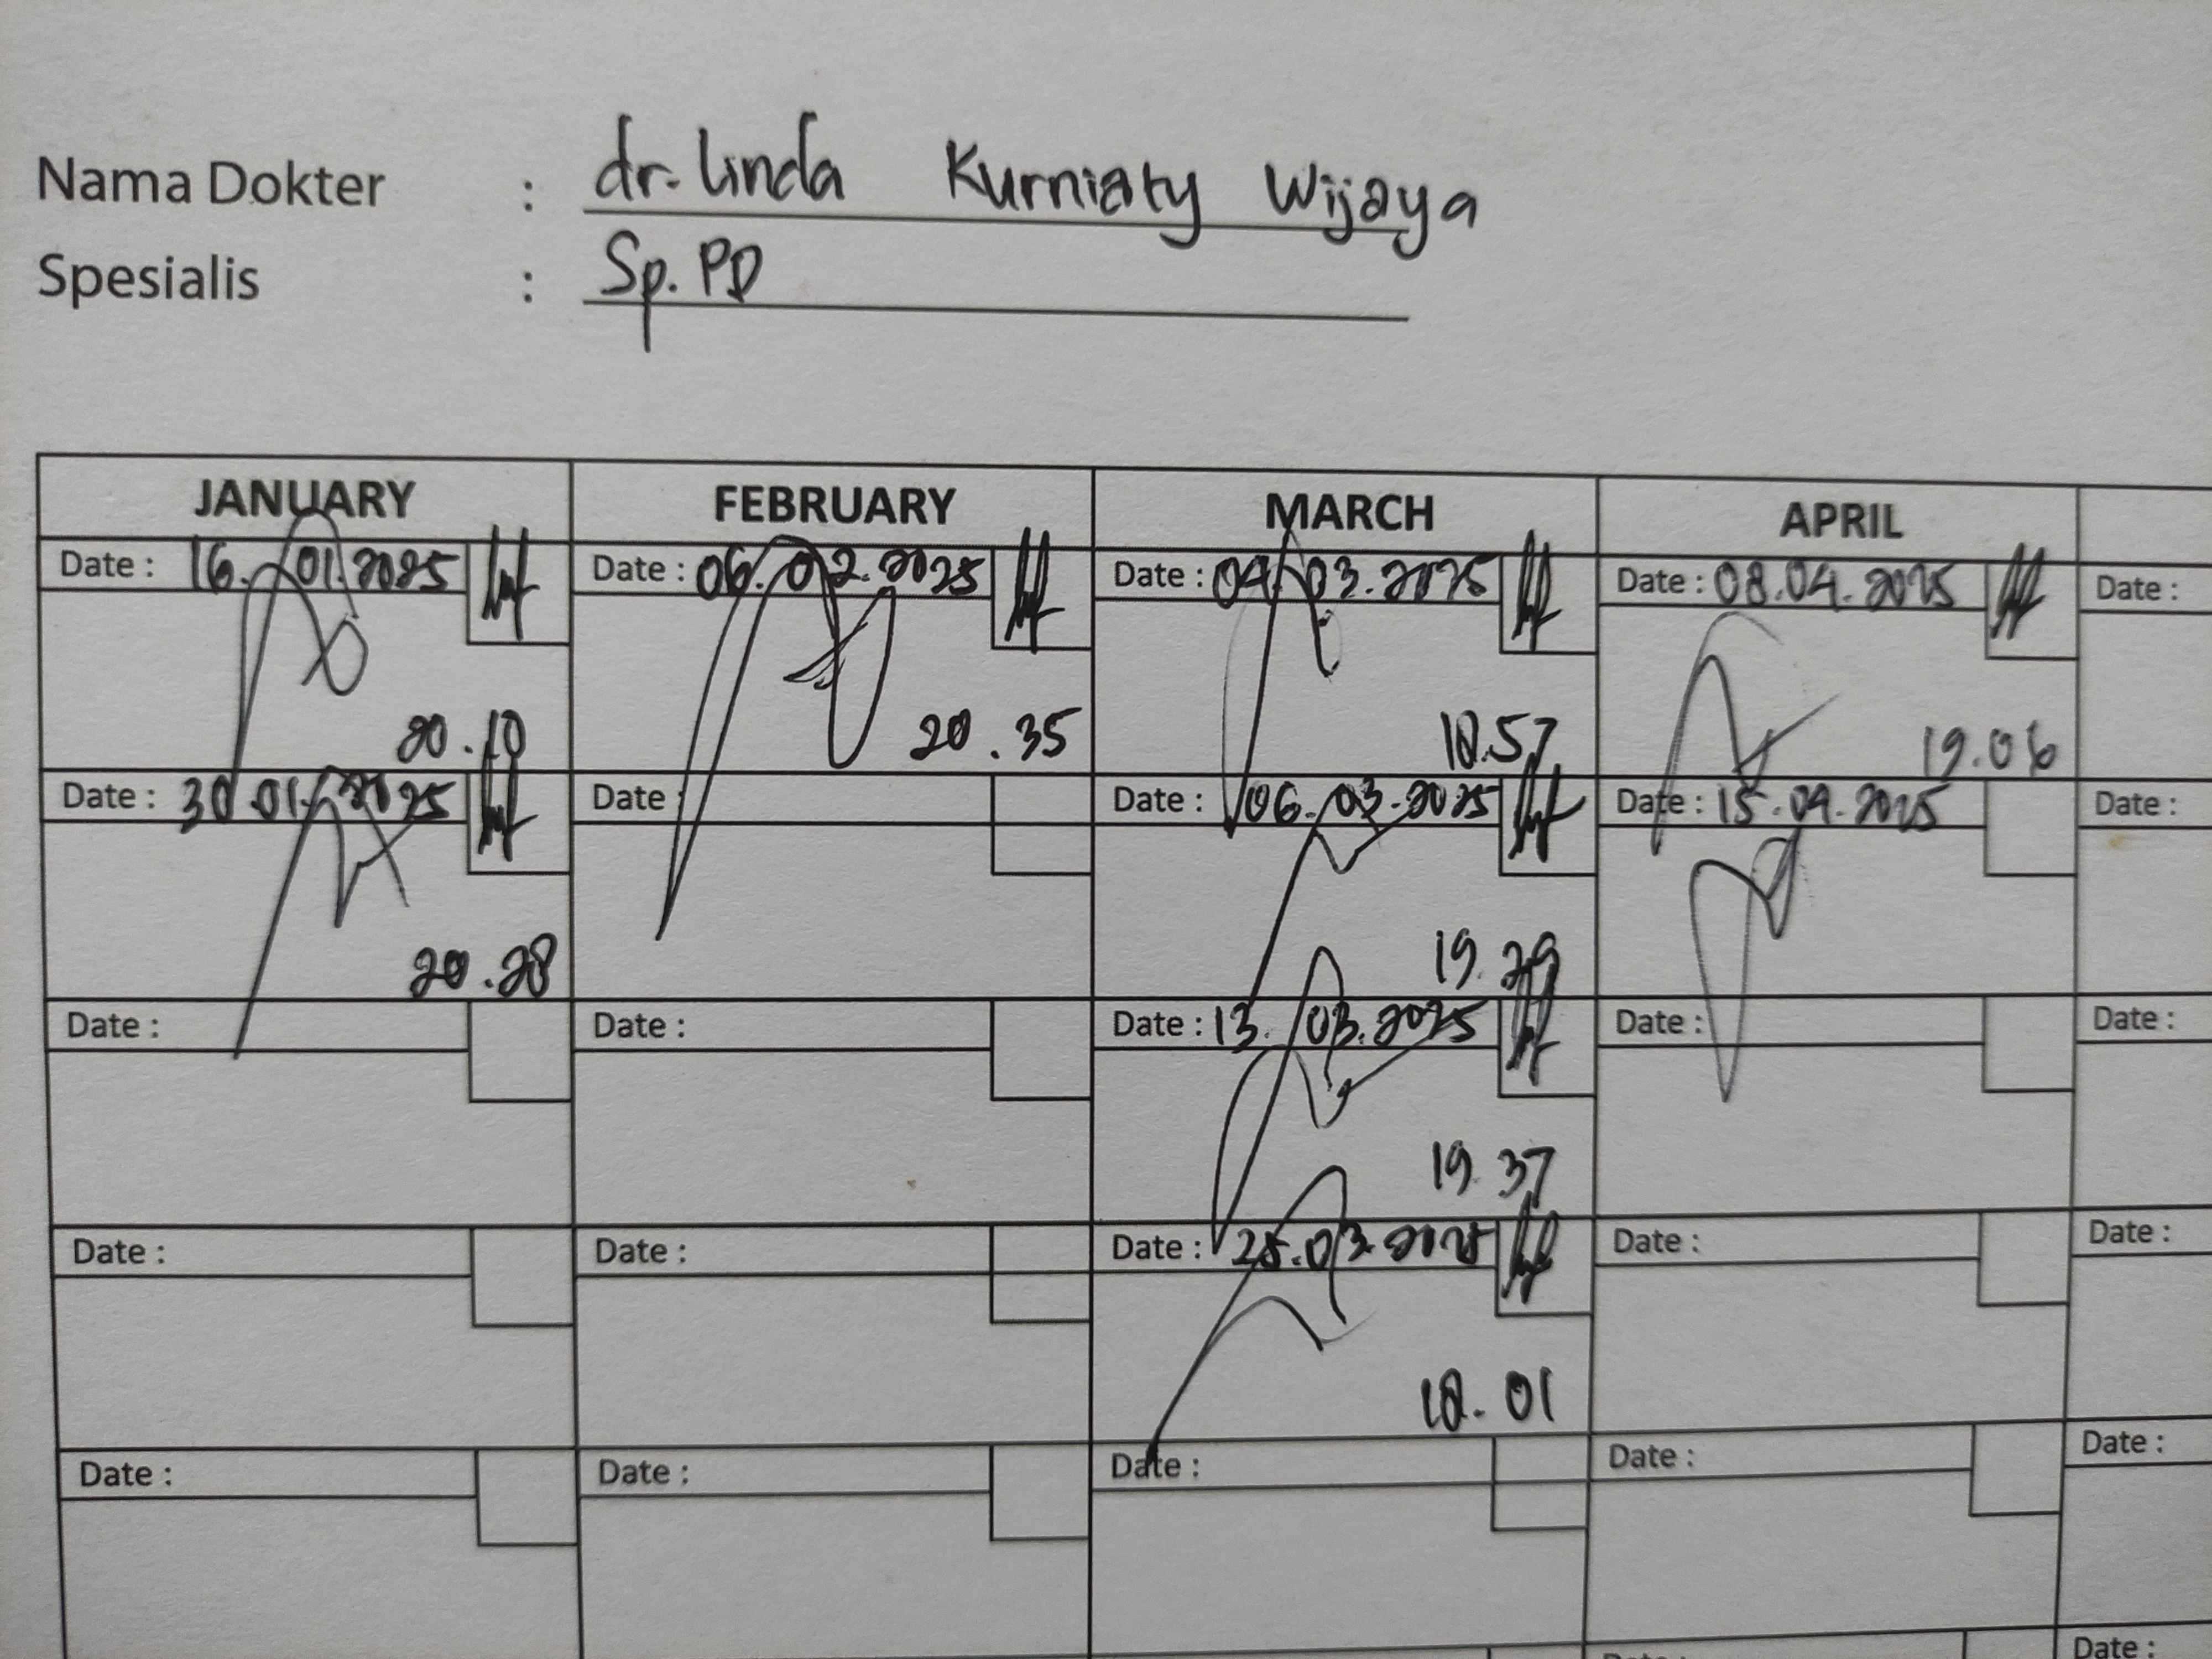 Nama Dokter : dr. Linda Kurniaty Wijaya
Spesialis : Sp. PD
JANUARY FEBRUARY MARCH APRIL
Date : 16. 01. 2025 Date : 06. 02. 2025 Date : 04. 03. 2025 Date : 08. 04. 2025 Date :
20. 10 20. 35 18.57 19.06
Date : 30 01. 2025 Date : Date : 06. 03. 2025 Date : 15. 04. 2025 Date :
20. 28 19. 29
Date : Date : Date : 13. 03. 2025 Date : Date :
19. 37
Date : Date : Date : 25. 03. 2025 Date : Date :
18. 01
Date : Date : Date : Date : Date :
Date :